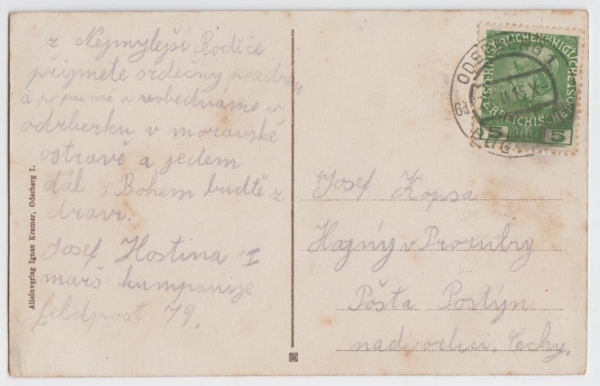 z Nejmylejší Rodiče
přijmete srdečny pozdrav
a
v
odrberku v moravské
ostravě a jedem
dál s Bohem budtě z
dravi.
Josef Hostina I
marš kumpanije
feldpost 79.
Alleinverlag Ignaz Kramer, Oderberg I.
ODERBERG 1
15
KAISERLICHE KÖNIGLICHE
ÖSTERREICHISCHE
5 5
Josef Kopsa
v
Pošta Postýn
nad orlici. Čechy.